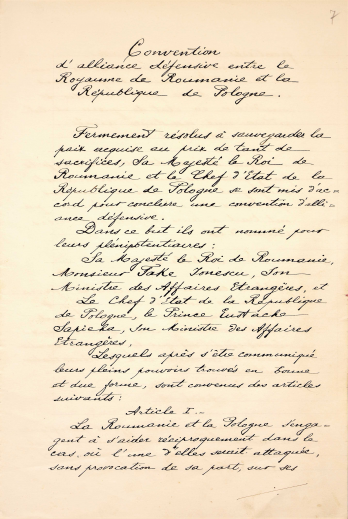 7
Convention
d'alliance défensive entre le
Royaume de Roumanie et la
République de Pologne.
Fermement résolus à sauvegarder la
paix acquise au prix de tant de
sacrifices, Sa Majesté le Roi de
Roumanie et le Chef d'Etat de la
République de Pologne se sont mis d'ac-
cord pour conclure une convention d'alli-
ance défensive.
Dans ce but ils ont nommé pour
leurs plénipotentiaires:
Sa Majesté le Roi de Roumanie,
Monsieur Take Ionescu, Son
Ministre des Affaires Etrangères, et
Le Chef d'Etat de la République
de Pologne, le Prince Eustache
Sapieha, Son Ministre des Affaires
Etrangères,
Lesquels après s'être communiqué
leurs pleins pouvoirs trouvés en bonne
et due forme, sont convenus des articles
suivants:
Article I.-
La Roumanie et la Pologne s'enga-
gent à s'aider réciproquement dans le
cas où l'une d'elles serait attaquée,
sans provocation de sa part, sur ses